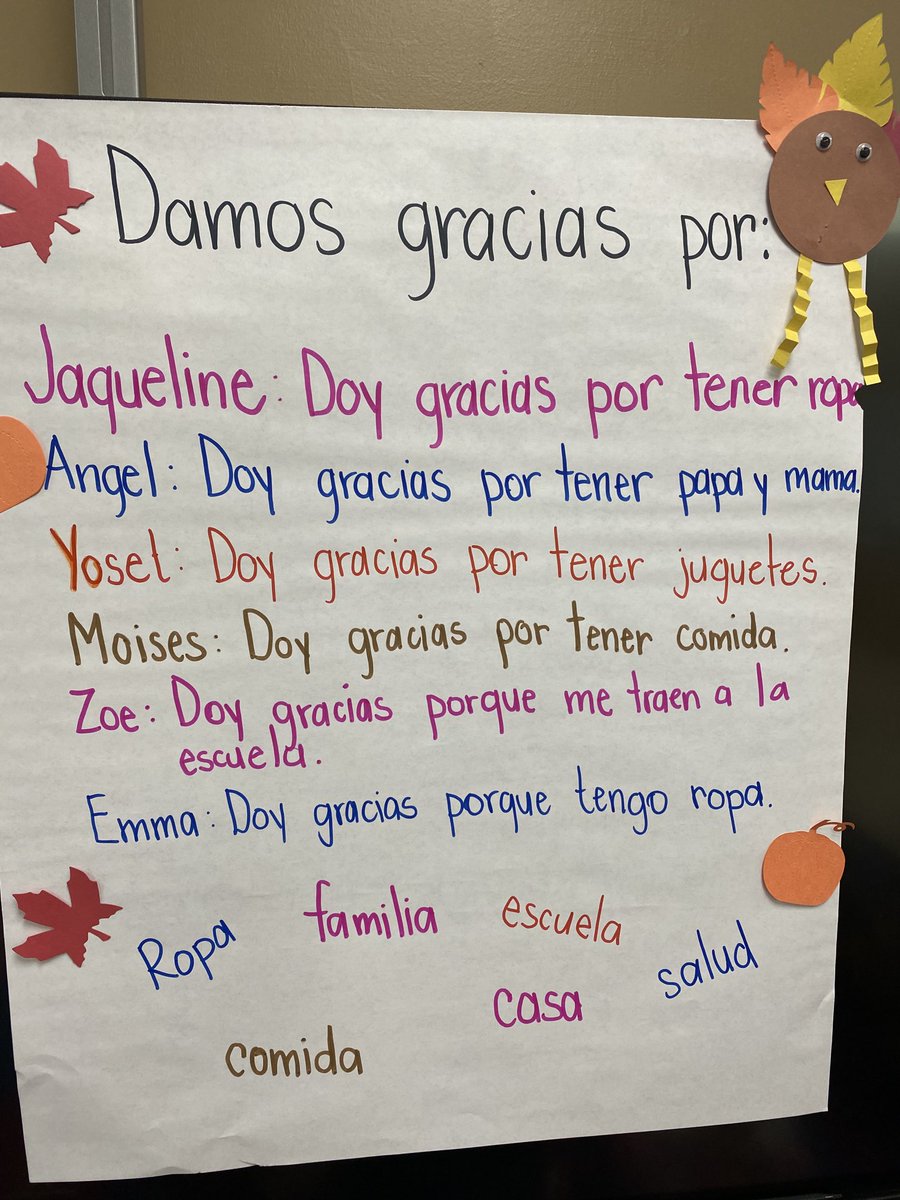 Damos gracias por:
Jaqueline: Doy gracias por tener ropa
Angel: Doy gracias por tener papa y mama.
Yoset: Doy gracias por tener juguetes.
Moises: Doy gracias por tener comida.
Zoe: Doy gracias porque me traen a la
escuela.
Emma: Doy gracias porque tengo ropa.
Ropa familia escuela salud
casa
comida